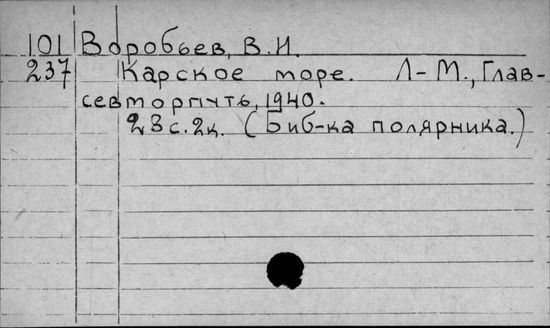 101 Воробьев, В.И.
237 Карское море. Л-М., Глав-
севморпуть, 1940.
23с. 2к. (Биб-ка полярника.)